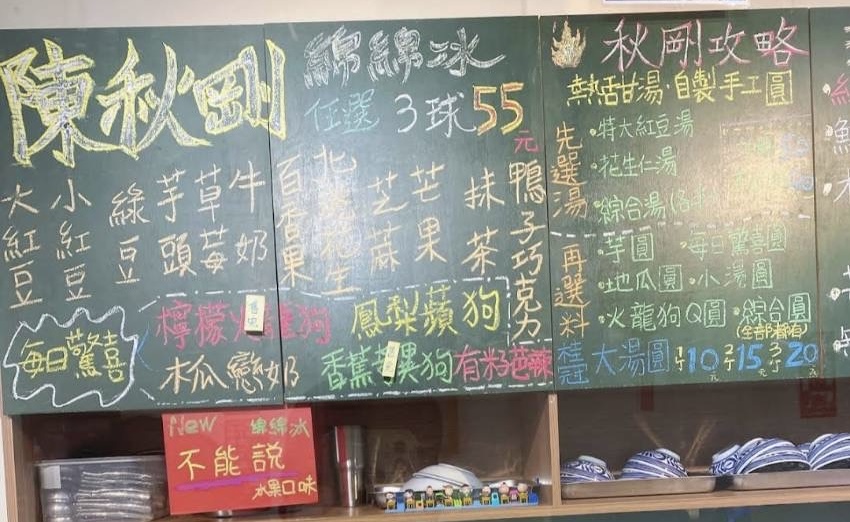 陳秋剛
綿綿冰
任選 3球55元
大紅豆
小紅豆
綠豆
芋頭
草莓
牛奶
百香果
北港花生
芝麻
芒果
抹茶
鴨子巧克力
每日驚喜
檸檬火龍狗
售完
鳳梨蘋狗
木瓜戀奶
香蕉芒果狗
有籽芭辣
秋剛攻略
熱活甘湯·自製手工圓
先選湯
·特大紅豆湯
·花生仁湯
·綜合湯
再選料
·芋圓 ·每日驚喜圓
·地瓜圓 ·小湯圓
·火龍狗Q圓 ·綜合圓
(全部都有)
桂冠 大湯圓 1丁10元 2丁15元 3丁20元
New 綿綿冰
不能說
水果口味